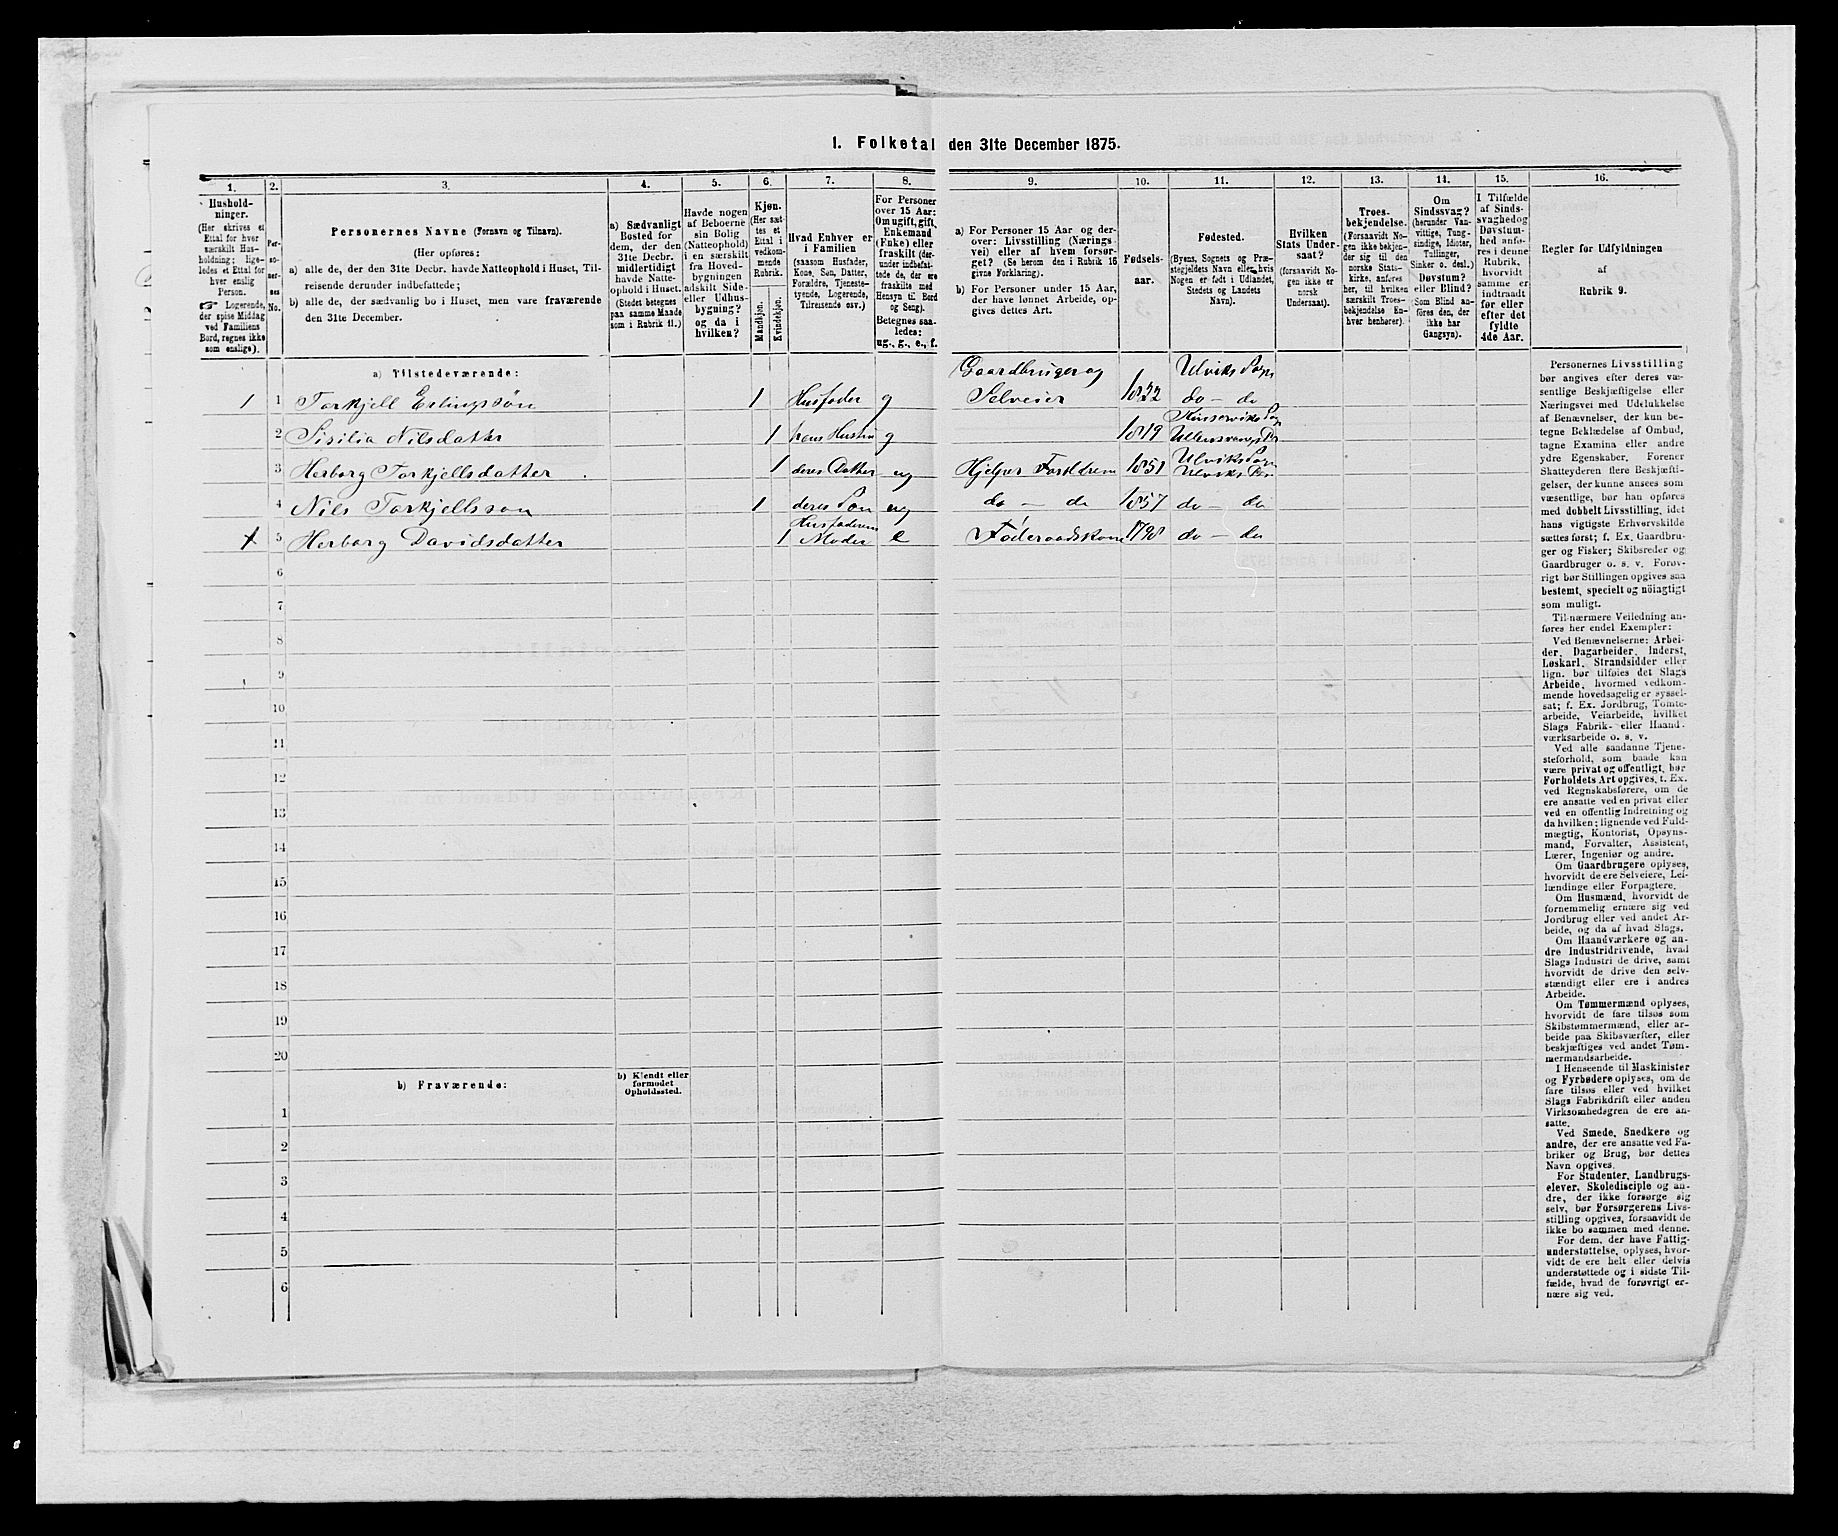 1. Folketal den 31te December 1875.
1.
2.
3.
4.
5.
6.
7.
8.
9.
10.
11.
12.
13.
14.
15.
16.
Hushold-
ninger.
(Her skrives et
Ettal for hver
særskilt Hus-
holdning; lige-
ledes et Ettal for
hver enslig
Person.
☞ Logerende,
der spise Middag
ved Familiens
Bord, regnes ikke
som enslige).
Per-
so-
ner-
nes
No.
Personernes Navne (Fornavn og Tilnavn).
(Her opføres:
a) alle de, der den 31te Decbr. havde Natteophold i Huset, Til-
reisende derunder indbefattede;
b) alle de, der sædvanlig bo i Huset, men vare fraværende
den 31te December.
a) Sædvanligt
Bosted for
dem, der den
31te Decbr.
midlertidigt
havde Natte-
ophold i Huset.
(Stedet betegnes
paa samme Maade
som i Rubrik 11.)
Havde nogen
af Beboerne
sin Bolig
(Natteophold)
i en særskilt
fra Hoved-
bygningen
adskilt Side-
eller Udhus-
bygning?
og da i
hvilken?
Kjøn.
(Her sæt-
tes et
Ettal i
vedkom-
mende
Rubrik.
Mandkjøn.
Kvindekjøn.
Hvad Enhver er
i Familien
(saasom Husfader,
Kone, Søn, Datter,
Forældre, Tjeneste-
tyende, Logerende,
Tilreisende osv.)
For Personer
over 15 Aar:
Om ugift, gift,
Enkemand
(Enke) eller
fraskilt (der-
under indbefat-
tede de, der ere
fraskilte med
Hensyn til Bord
og Seng).
Betegnes saa-
ledes:
ug., g., e., f.
a) For Personer 15 Aar og der-
over: Livsstilling (Nærings-
vei) eller af hvem forsør-
get? (Se herom den i Rubrik 16
givne Forklaring).
b) For Personer under 15 Aar,
der have lønnet Arbeide, op-
gives dettes Art.
Fødsels-
aar.
Fødested.
(Byens, Sognets og Præ-
stegjeldets Navn eller, hvis
Nogen er født i Udlandet,
Stedets og Landets
Navn).
Hvilken
Stats Under-
saat?
(forsaavidt No-
gen ikke er
norsk
Undersaat).
Troes-
bekjendelse.
(Forsaavidt No-
gen ikke bekjen-
der sig til den
norske Stats-
kirke, anføres
her, til hvilken
særskilt Troes-
bekjendelse En-
hver henhører).
Om
Sindssvag?
(herunder Van-
vittige, Tung-
sindige, Idioter,
Tullinger,
Sinker o. desl.)
Døvstum?
eller Blind?
(Som Blind an-
føres den, der
ikke har
Gangsyn).
I Tilfælde
af Sinds-
svaghed og
Døvstum-
hed anfø-
res i denne
Rubrik,
hvorvidt
samme er
indtraadt
før eller
efter det
fyldte
4de Aar.
Regler før Udfyldningen
af
Rubrik 9.
a) Tilstedeværende:
Gaardbruger og Ulviks Sogn
1 1 Torkjell Erlingssøn 1 Husfader g Selveier 1822 do — do
Kinserviks Sogn
2 Sisilia Nilsdatter 1 hans Hustru g 1819 Ullensvangs Pr
Ulviks Sogn
3 Herborg Torkjellsdatter 1 deres Datter ug Hjelper Forældrene 1851 Ulviks Pr
4 Nils Torkjellsson 1 deres Søn ug do — do 1857 do — do
Husfaderens
1 5 Herborg Davidsdatter 1 Moder e Føderaadskone 1798 do — do
6
7
8
9
10
11
12
13
14
15
16
17
18
19
20
b) Fraværende:
b) Kjendt eller
formodet
Opholdssted.
1
2
3
4
5
6
Personernes Livsstilling
bør angives efter deres væ-
sentlige Beskjæftigelse eller
Næringsvei med Udelukkelse
af Benævnelser, der kun be-
tegne Beklædelse af Ombud,
tagne Examina eller andre
ydre Egenskaber. Forener
Skatteyderen flere Beskjæfti-
gelser, der kunne ansees som
væsentlige, bør han opføres
med dobbelt Livsstilling, idet
hans vigtigste Erhvervskilde
sættes først; f. Ex. Gaardbru-
ger og Fisker; Skibsreder og
Gaardbruger o. s. v. Forøv-
rigt bør Stillingen opgives saa
bestemt, specielt og nöiagtigt
som muligt.
Til nærmere Veiledning an-
føres her endel Exempler:
Ved Benævnelserne: Arbei-
der, Dagarbeider, Inderst,
Løskarl, Strandsidder eller
lign. bør tilføies det Slags
Arbeide, hvormed vedkom-
mende hovedsagelig er syssel-
sat; f. Ex. Jordbrug, Tomte-
arbeide, Veiarbeide, hvilket
Slags Fabrik- eller Haand-
værksarbeide o. s. v.
Ved alle saadanne Tjene-
steforhold, som baade kan
være privat og offentligt, bør
Forholdets Art opgives, t. Ex.
ved Regnskabsførere, om de
ere ansatte ved en privat eller
ved en offentlig Indretning og
da hvilken; lignende ved Fuld-
mægtig, Kontorist, Opsyns-
mand, Forvalter, Assistent,
Lærer, Ingeniør og andre.
Om Gaardbrugere oplyses,
hvorvidt de ere Selveiere, Lei-
lændinge eller Forpagtere.
Om Husmænd, hvorvidt de
fornemmelig ernære sig ved
Jordbrug eller ved andet Ar-
beide, og da af hvad Slags.
Om Haandværkere og an-
dre Industridrivende, hvad
Slags Industri de drive, samt
hvorvidt de drive den selv-
stændigt eller ere i andres
Arbeide.
Om Tømmermænd oplyses,
hvorvidt de fare tilsøs som
Skibstømmermænd, eller ar-
beide paa Skibsværfter, eller
beskjæftiges ved andet Tøm-
mermandsarbeide.
I Henseende til Maskinister
og Fyrbødere oplyses, om de
fare tilsøs eller ved hvilket
Slags Fabrikdrift eller anden
Virksomhedsgren de ere an-
satte.
Ved Smede, Snedkere og
andre, der ere ansatte ved Fa-
briker og Brug, bør dettes
Navn opgives.
For Studenter, Landbrugs-
elever, Skoledisciple og an-
dre, der ikke forsørge sig
selv, bør Forsørgerens Livs-
stilling opgives, forsaavidt de
ikke bo sammen med denne.
For dem, der have Fattig-
understøttelse, oplyses, hvor-
vidt de ere helt eller delvis
understøttede og i sidste Til-
fælde, hvad de forøvrigt er-
nære sig ved.